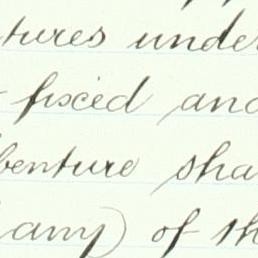 tures under
fixed and
benture sha
any) of th